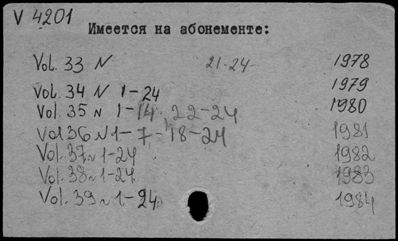 V 4201
Имеется на абонементе:
Vol. 33 N 21-24- 1978
Vol. 34 N 1-24 1979
Vol. 35 N 1-14, 22-24 1980
Vol 36 N 1-7, 18-24 1981
Vol. 37 N 1-24 1982
Vol. 38 N 1-24 1983
Vol. 39 N 1-24 1984